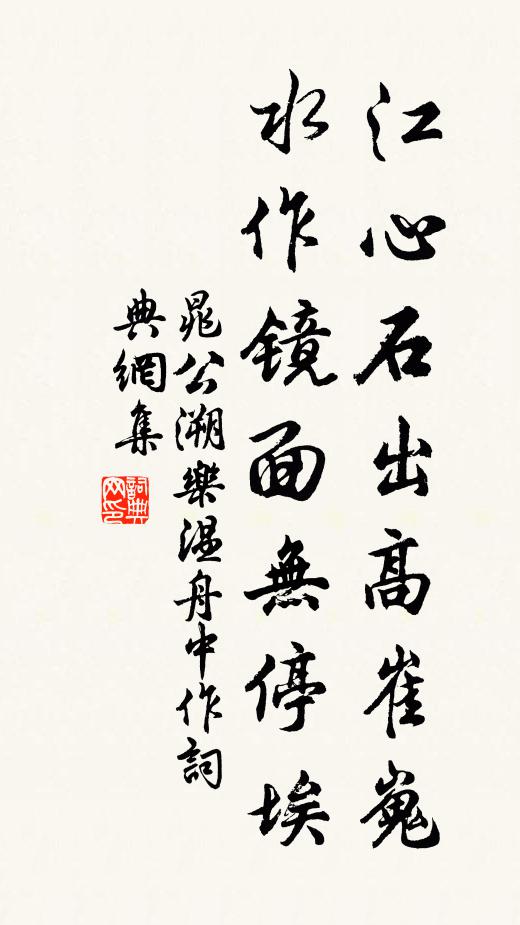 江心石出高崔嵬
水作镜面無停埃
晁公溯樂温舟中作詞
典網集
詞典网印